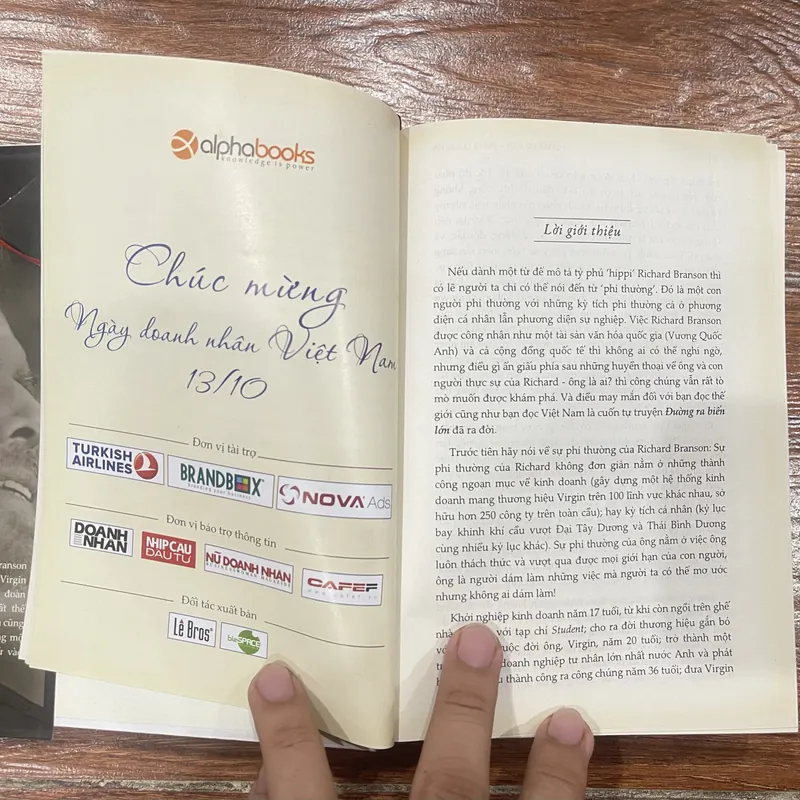 alphabooks
knowledge is power
Chúc mừng
Ngày doanh nhân Việt Nam
13/10
Đơn vị tài trợ
TURKISH AIRLINES
BRANDBOX
branding your business
NOVA Ads
Đơn vị bảo trợ thông tin
DOANH NHÂN
NHỊP CẦU ĐẦU TƯ
NỮ DOANH NHÂN
CAFEF
Đối tác xuất bản
Lê Bros
bizSPACE
Lời giới thiệu
Nếu dành một từ để mô tả tỷ phú ‘hippi’ Richard Branson thì
có lẽ người ta chỉ có thể nói đến từ ‘phi thường’. Đó là một con
người phi thường với những kỳ tích phi thường cả ở phương
diện cá nhân lẫn phương diện sự nghiệp. Việc Richard Branson
được công nhận như một tài sản văn hóa quốc gia (Vương Quốc
Anh) và cả cộng đồng quốc tế thì không ai có thể nghi ngờ,
nhưng điều gì ẩn giấu phía sau những huyền thoại về ông và con
người thực sự của Richard - ông là ai? thì công chúng vẫn rất tò
mò muốn được khám phá. Và điều may mắn đối với bạn đọc thế
giới cũng như bạn đọc Việt Nam là cuốn tự truyện Đường ra biển
lớn đã ra đời.
Trước tiên hãy nói về sự phi thường của Richard Branson: Sự
phi thường của Richard không đơn giản nằm ở những thành
công ngoạn mục về kinh doanh (gây dựng một hệ thống kinh
doanh mang thương hiệu Virgin trên 100 lĩnh vực khác nhau, sở
hữu hơn 250 công ty trên toàn cầu); hay kỳ tích cá nhân (kỷ lục
bay khinh khí cầu vượt Đại Tây Dương và Thái Bình Dương
cùng nhiều kỷ lục khác). Sự phi thường của ông nằm ở việc ông
luôn thách thức và vượt qua được mọi giới hạn của con người,
ông là người dám làm những việc mà người ta có thể mơ ước
nhưng không ai dám làm!
Khởi nghiệp kinh doanh năm 17 tuổi, từ khi còn ngồi trên ghế
nhà với tạp chí Student; cho ra đời thương hiệu gắn bó
cuộc đời ông, Virgin, năm 20 tuổi; trở thành một
doanh nghiệp tư nhân lớn nhất nước Anh và phát
thành công ra công chúng năm 36 tuổi; đưa Virgin
ranson
Virgin
đoàn
ất thế
cũng
ng một
ừ vào